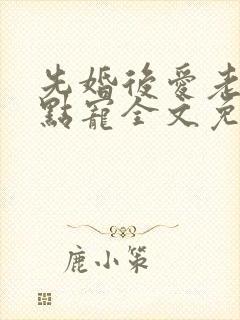 先婚後愛老
點寵全文免
鹿小策